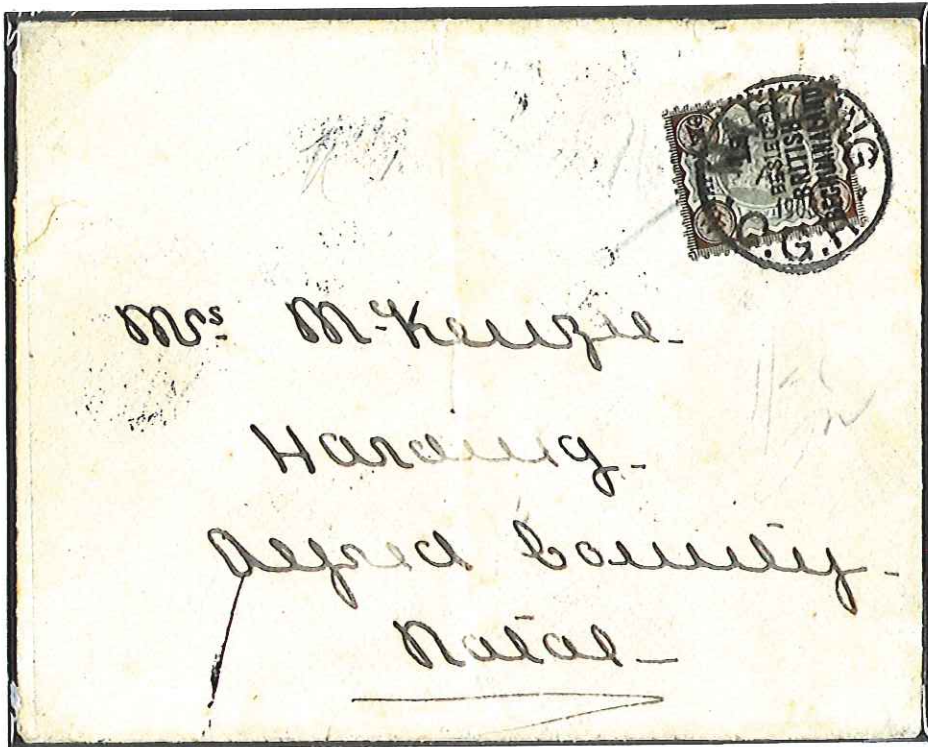 1s.
BESIEGED
BRITISH
BECHUANALAND
4D
1900
Mrs. McKenzie -
Harding -
Alfred County -
Natal -